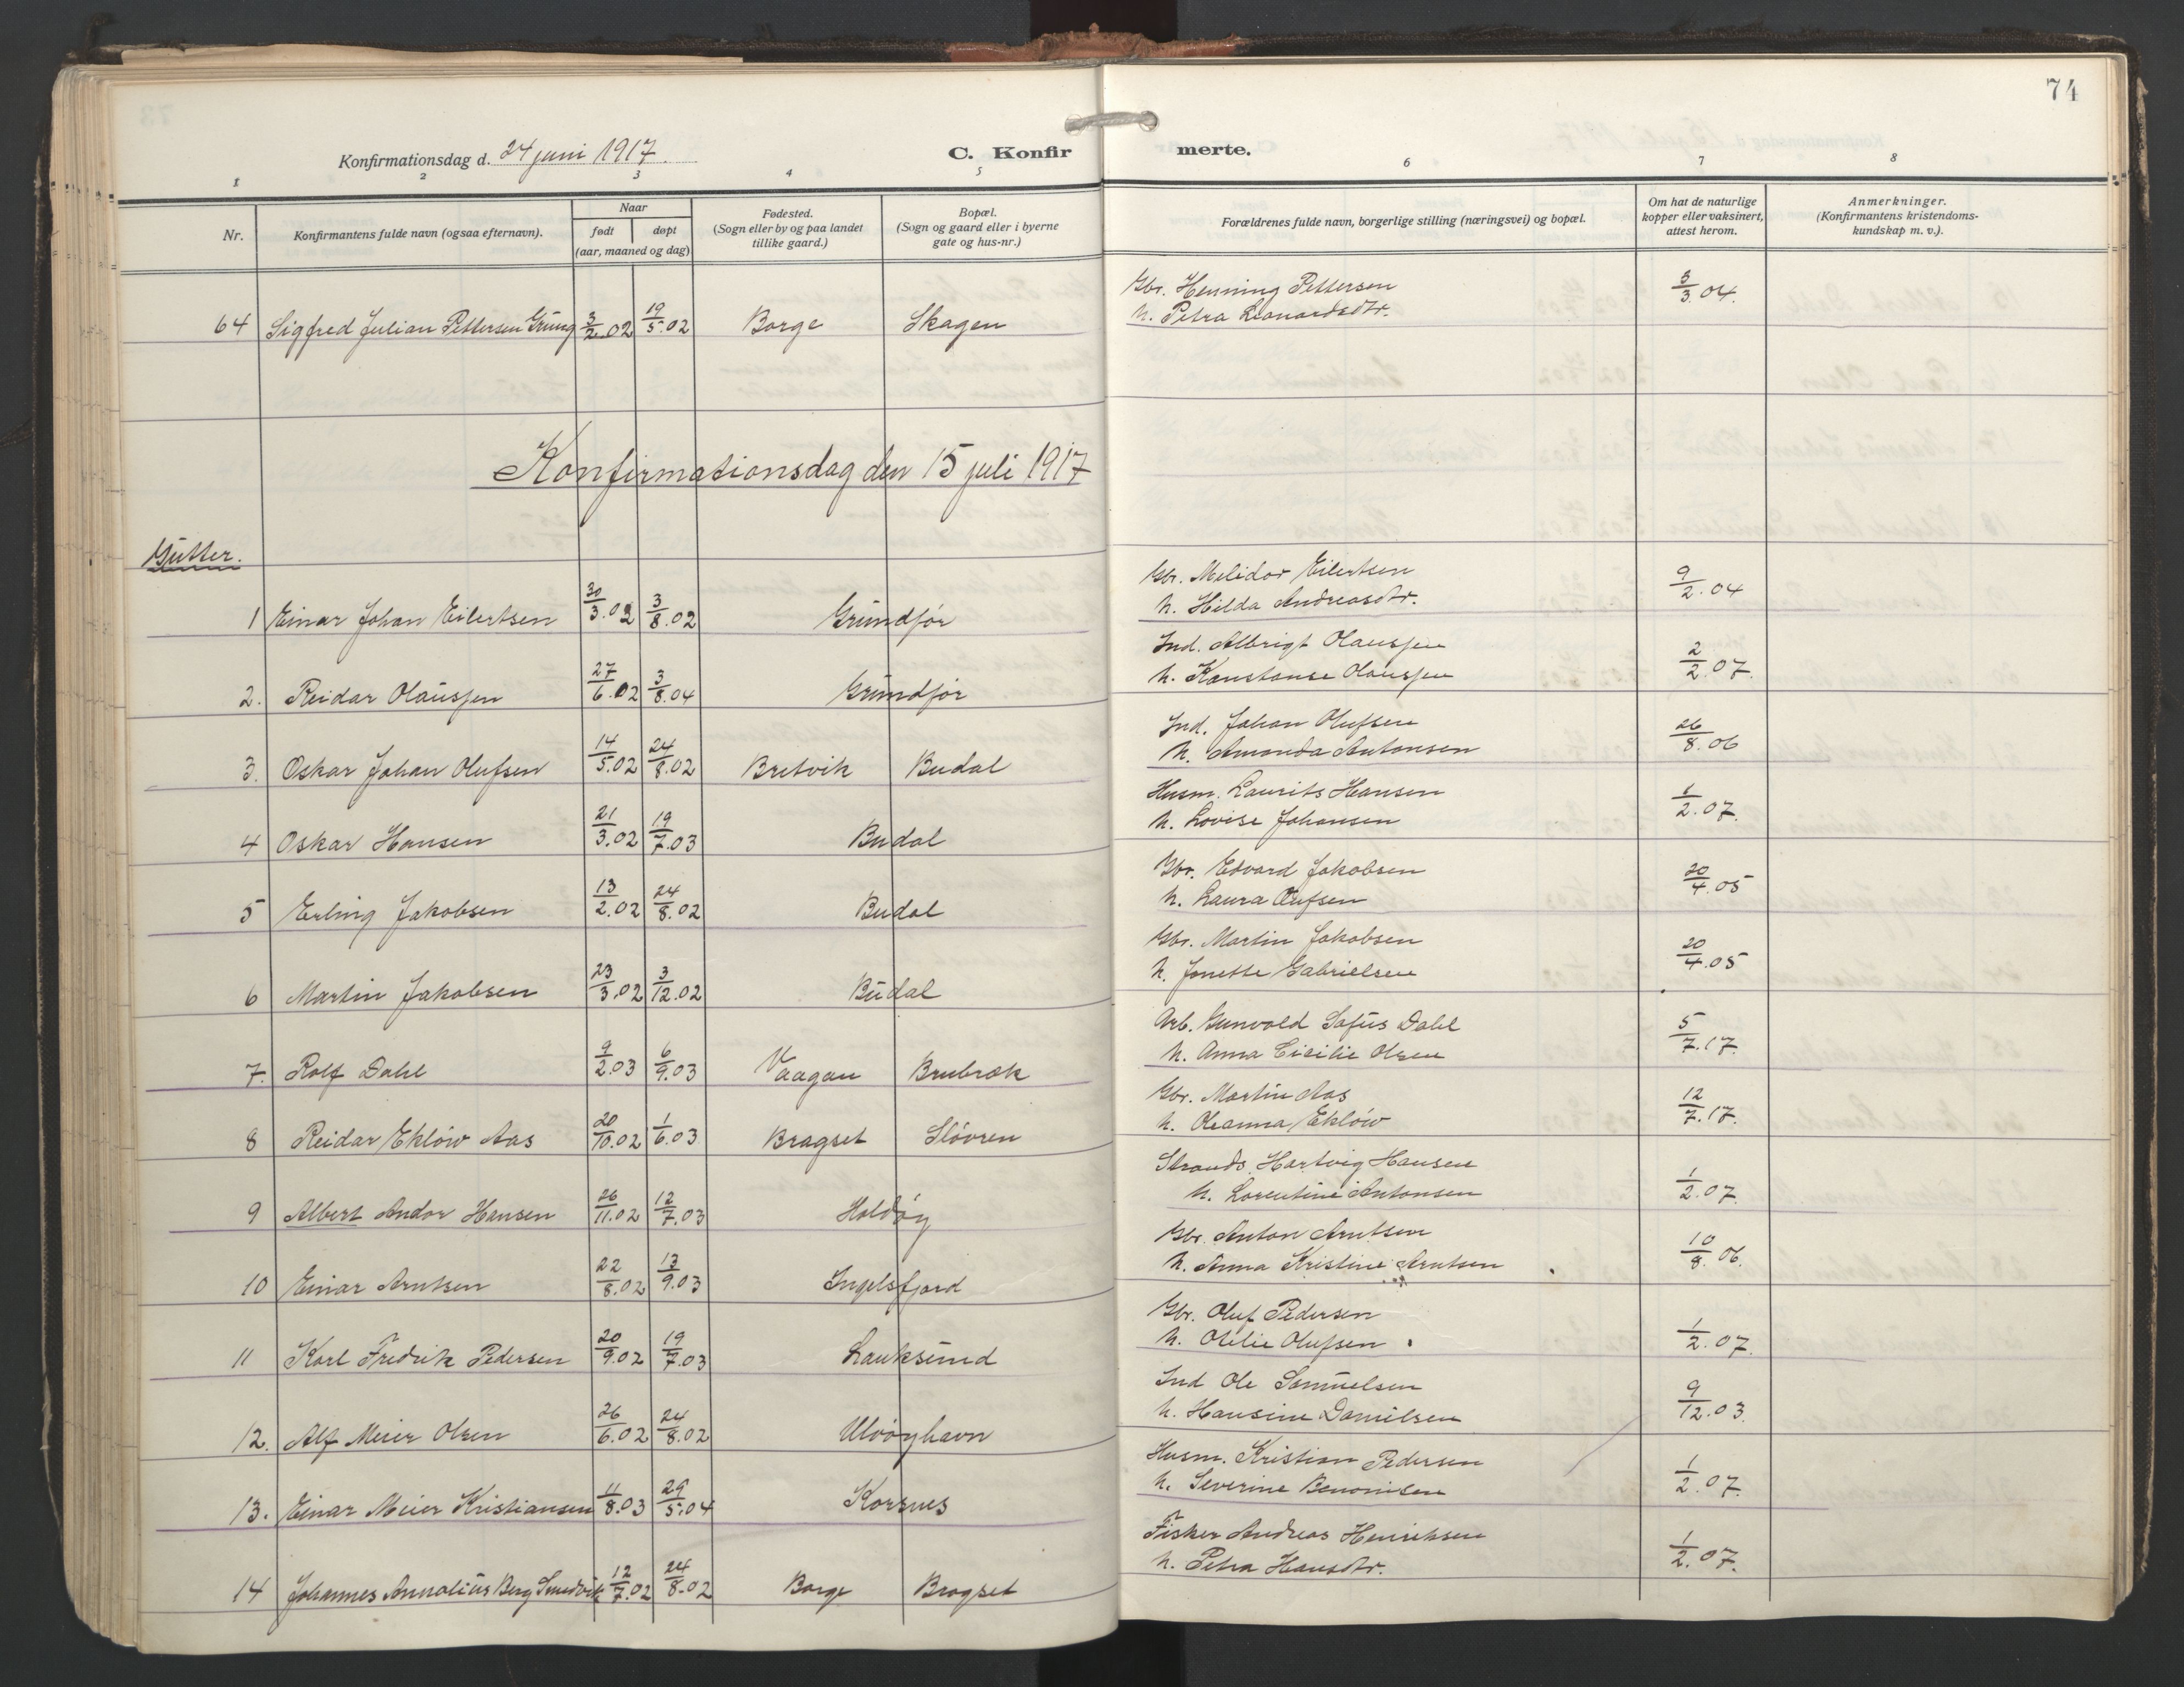 74
Konfirmationsdag d. 24 juni 1917. C. Konfirmerte.
1 2 3 4 5 6 7 8
Nr. Konfirmantens fulde navn (ogsaa efternavn). Naar født døpt (aar, maaned og dag) Fødested. (Sogn eller by og paa landet tillike gaard.) Bopæl. (Sogn og gaard eller i byerne gate og hus-nr.) Forældrenes fulde navn, borgerlige stilling (næringsvei) og bopæl. Om hat de naturlige kopper eller vaksinert, attest herom. Anmerkninger. (Konfirmantens kristendoms-kundskap m. v.).
64 Sigfred Julian Pettersen Grüng 3/2.02 19/5.02 Borge Skagen Gbr. Henning Pettersen 3/3.04.
h. Petra Leonardsdtr.
Konfirmationsdag den 15 juli 1917
Gutter.
1 Einar Johan Eilertsen 30/3.02 3/8.02 Grundfør Gbr. Melidor Eilertsen 9/2.04
h. Hilda Andreasdtr.
2. Reidar Olaussen 27/6.02 3/8.04 Grundfør Ind. Albrigt Olaussen 2/2.07.
h. Konstanse Olaussen
3. Oskar Johan Olufsen 14/5.02 24/8.02 Bretvik Budal Ind. Johan Olufsen 26/8.06
h. Amanda Antonsen
4 Oskar Hansen 21/3.02 19/7.03 Budal Husm. Laurits Hansen 1/2.07.
h. Lovise Johansen
5 Erling Jakobsen 13/2.02 24/8.02 Budal Gbr. Edvard Jakobsen 20/4.05
h. Laura Olufsen
6 Martin Jakobsen 23/3.02 3/12.02 Budal Gbr. Martin Jakobsen 20/4.05
h. Jonette Gabrielsen
7. Rolf Dahl 9/2.03 6/9.03 Vaagan Brubræk Arb. Gunvald Sofus Dahl 5/7.17.
h. Anna Cicilie Olsen
8 Reidar Ekløw Aas 20/10.02 1/6.03 Bragset Sløvren Gbr. Martin Aas 12/7.17.
h. Oleanna Ekløw
9 Albert Andor Hansen 26/11.02 12/7.03 Holdøy Strands. Hartvig Hansen 1/2.07.
h. Lorentine Antonsen
10 Einar Arntsen 22/8.02 13/9.03 Ingelsfjord Gbr. Anton Arntsen 10/8.06.
h. Anna Kristine Arntsen
11 Karl Fredrik Pedersen 20/9.02 19/7.03 Lauksund Gbr. Oluf Pedersen 1/2.07.
h. Otilie Olufsen
12. Alf Meier Olsen 26/6.02 24/8.02 Ulvøyhavn Ind Ole Samuelsen 9/12.03.
h. Hansine Danielsen
13. Einar Meier Kristiansen 11/8.03 29/5.04 Korsnes Husm. Kristian Pedersen 1/2.07.
h. Severine Benonisen
14 Johannes Annalius Berg Smedvik 12/7.02 24/8.02 Borge Bragset Fisker Andreas Henriksen 1/2.07.
h. Petra Hansdtr.